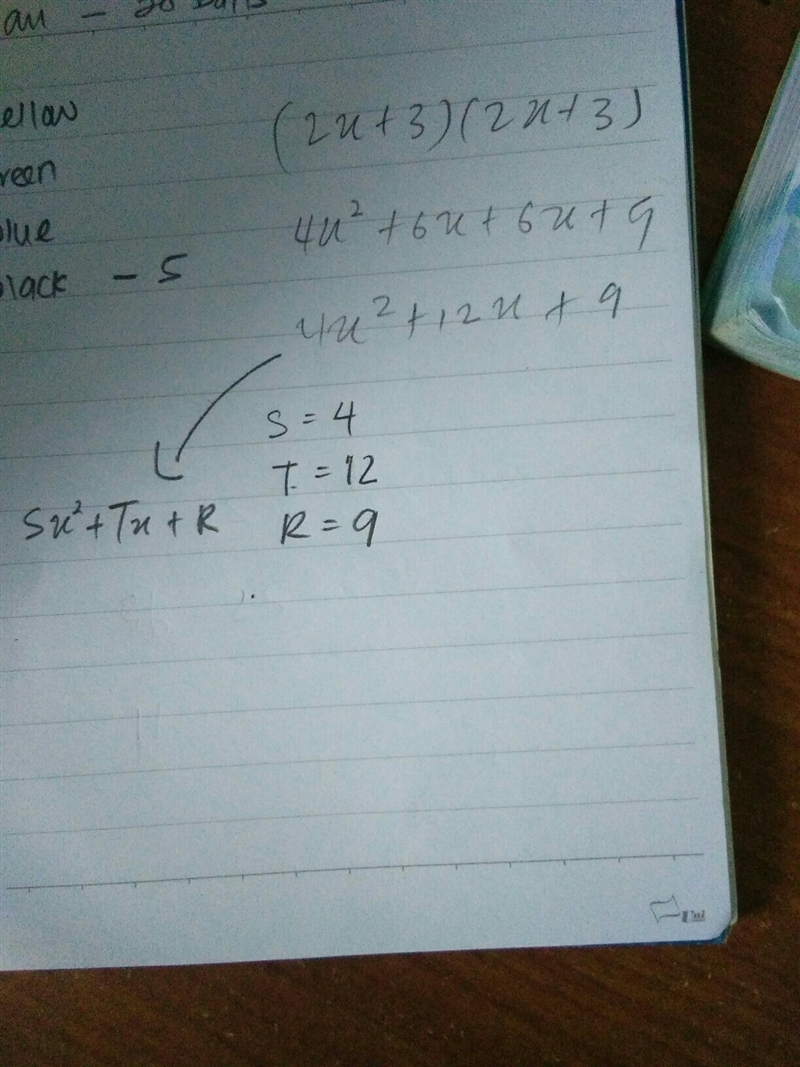 au - 20 balls
ellow
reen
blue
black - 5
(2x+3)(2x+3)
4x² + 6x + 6x + 9
4x² + 12x + 9
S = 4
T = 12
R = 9
Sx² + Tx + R